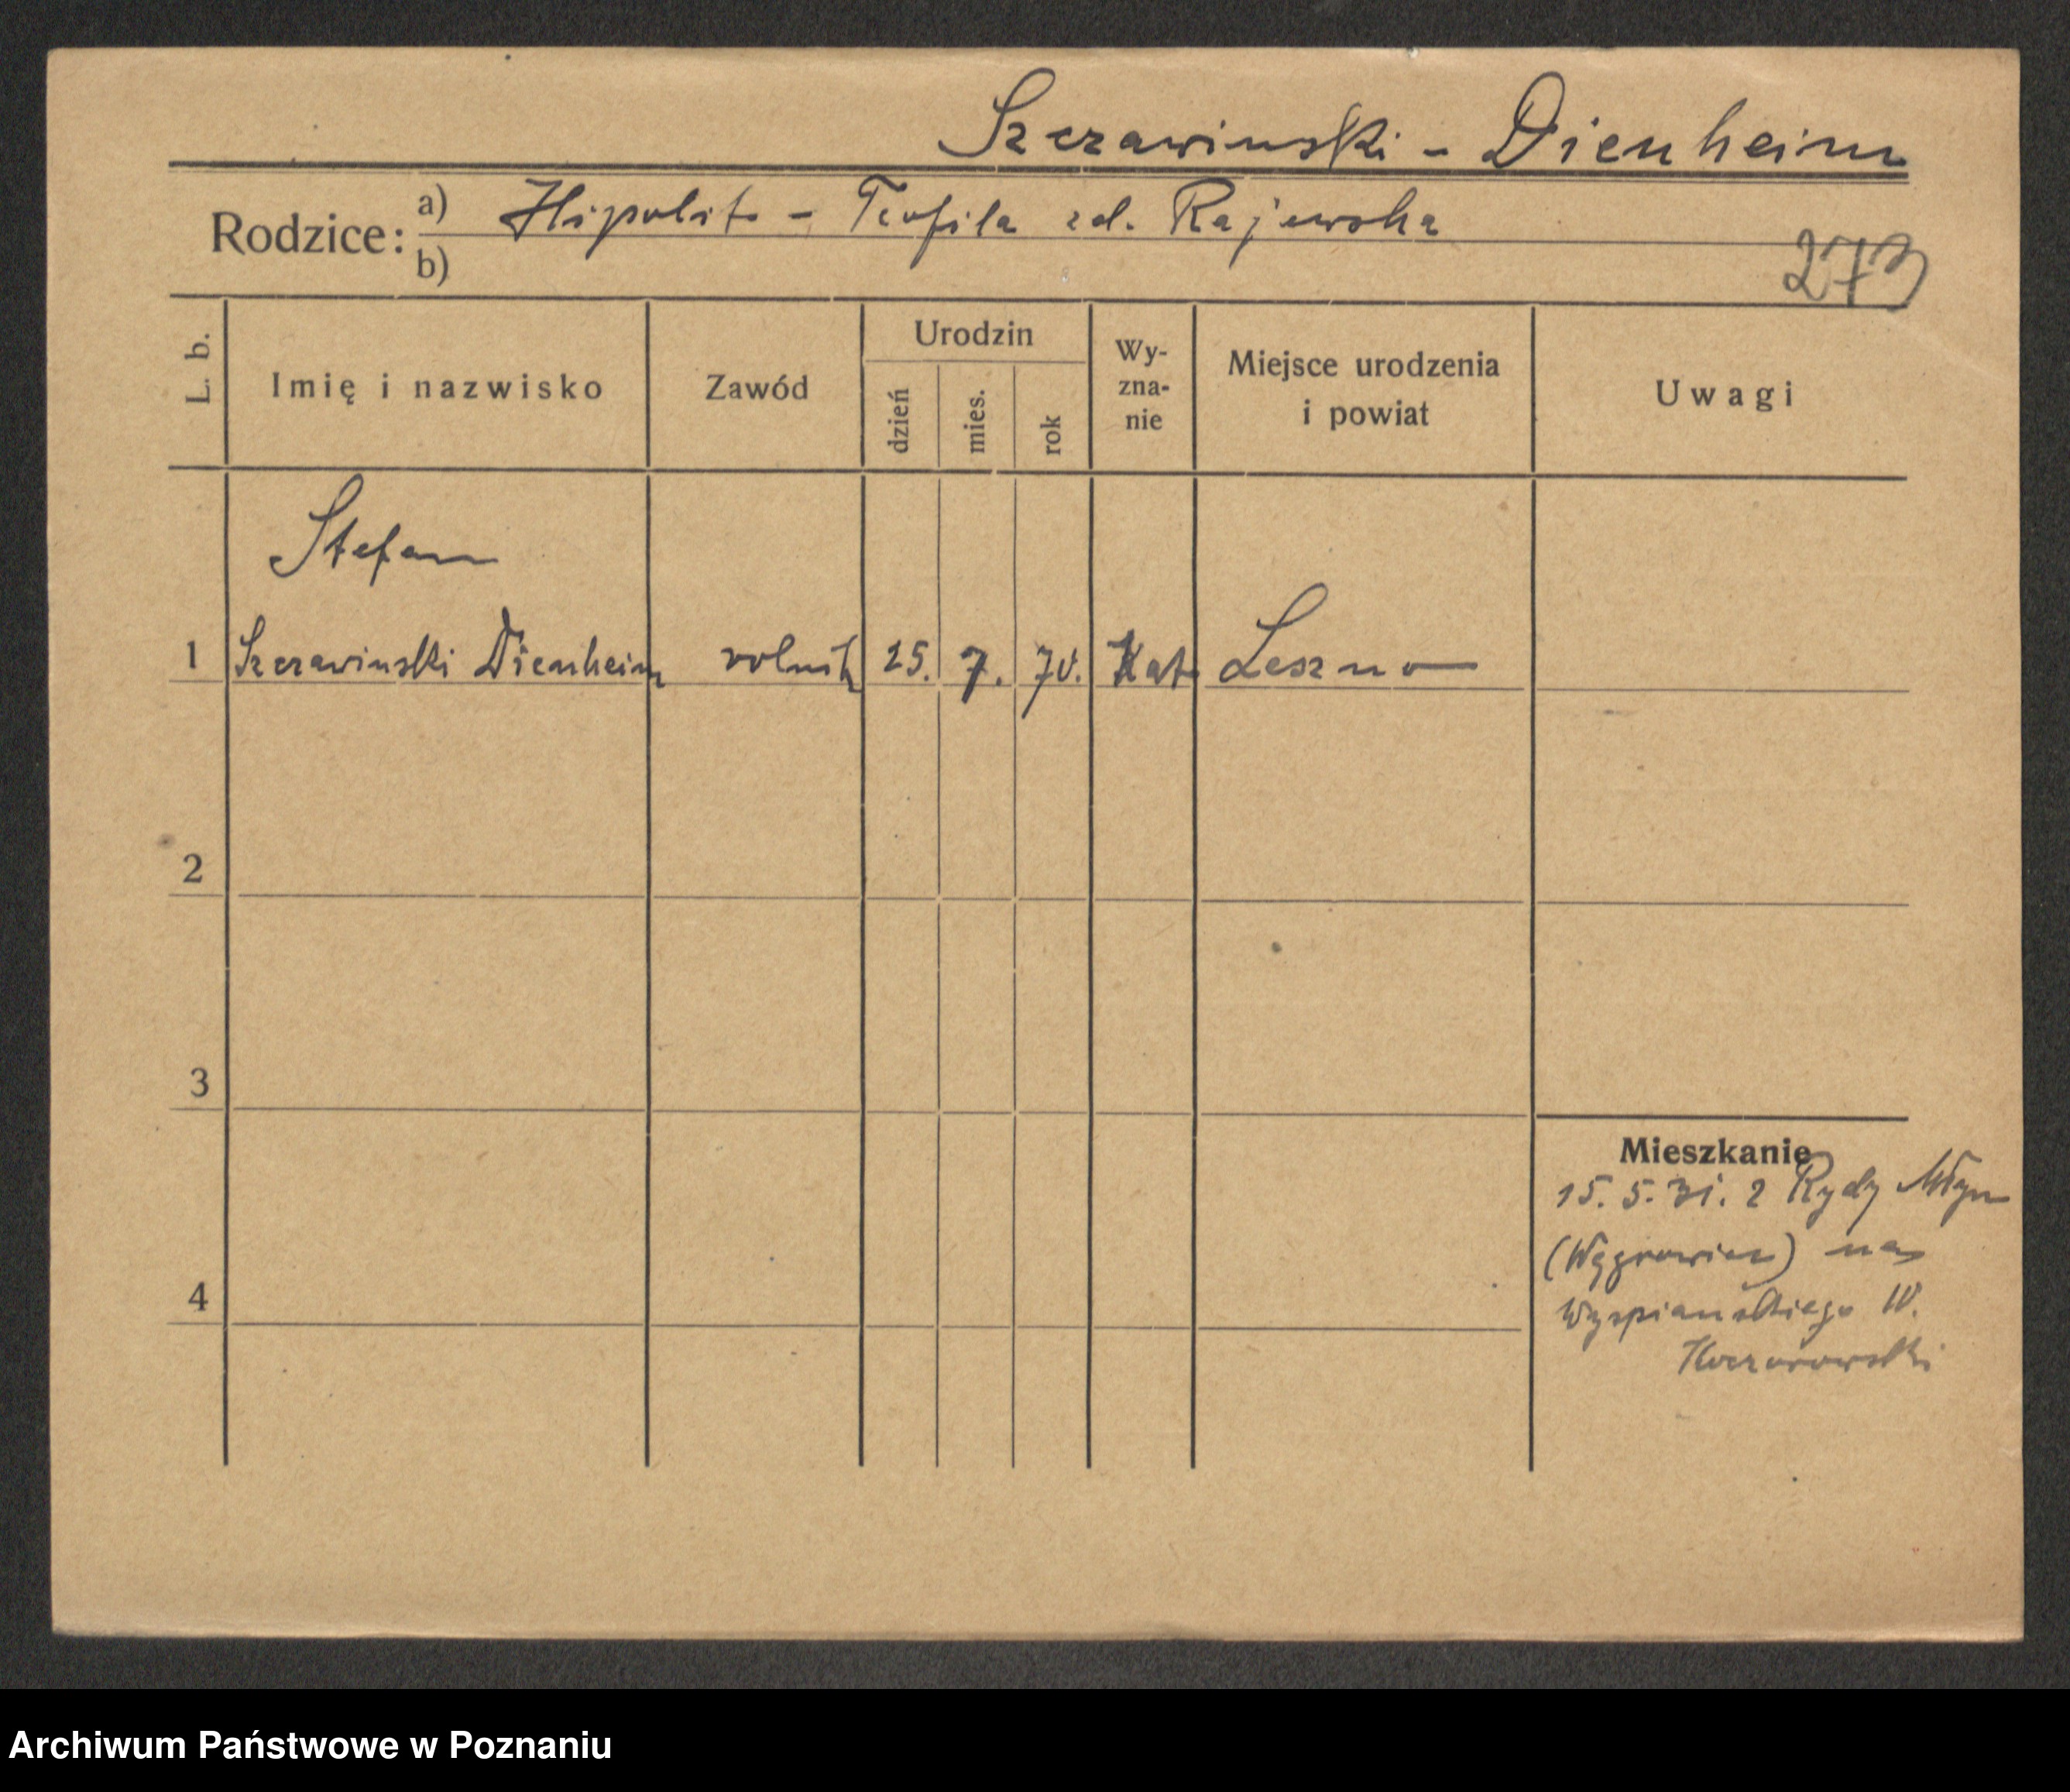 Szczawinski - Dienheim
Rodzice: a) Hipolit - Teofila zd. Rajewska
b)
273
L. b. Imię i nazwisko Zawód Urodzin dzień mies. rok Wy-zna-nie Miejsce urodzenia i powiat Uwagi
Stefan
1 Szczawinski Dienheim rolnik 25. 7. 70. Kat. Leszno
2
3
Mieszkanie
15. 5. 31. z Rydy Młyn
(Wągrowiec) na
4
Wyspianskiego 10.
Koczorowski
Archiwum Państwowe w Poznaniu